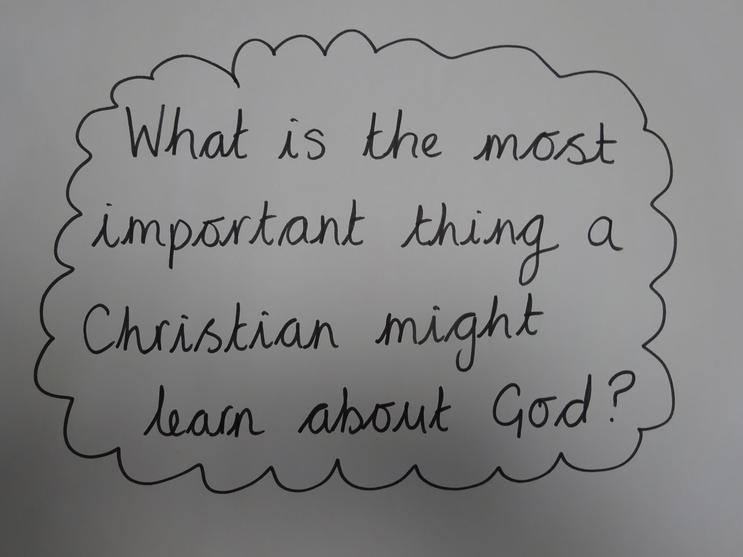 What is the most
important thing a
Christian might
learn about God?